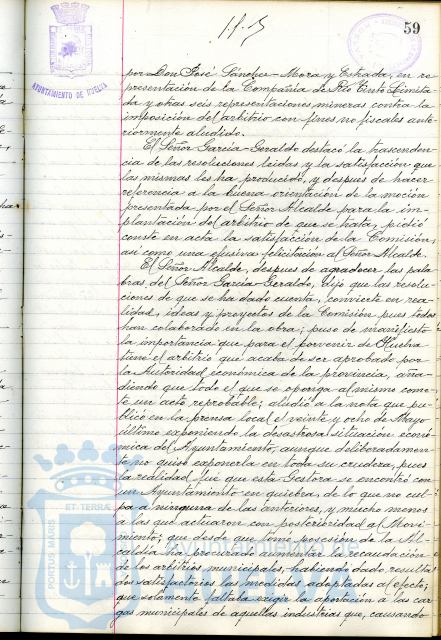 59
AYUNTAMIENTO DE HUELVA
por Don José Sánchez-Mora y Estrada, en re
presentación de la Compañía de Rio Tinto Limita-
da y otras seis representaciones mineras contra la
imposición del arbitrio con fines no fiscales ante-
riormente aludido.
El Señor García-Geraldo destacó la trascenden-
cia de las resoluciones leidas y la satisfacción que
las mismas les ha producido, y despues de hacer
referencia a la buena orientación de la moción
presentada por el Señor Alcalde para la im-
plantación del arbitrio de que se trata, pidió
conste en acta la satisfacción de la Comisión,
así como una efusiva felicitación al Señor Alcalde.
El Señor Alcalde, despues de agradecer las pala-
bras del Señor García Geraldo, dijo que las resolu-
ciones de que se ha dado cuenta, convierte en rea-
lidad, ideas y proyectos de la Comisión pues todos
han colaborado en la obra; puso de manifiesto
la importancia que para el porvenir de Huelva
tiene el arbitrio que acaba de ser aprobado por
la Autoridad económica de la provincia, aña-
diendo que todo el que se oponga al mismo come-
te un acto reprobable; aludió a la nota que pu-
blicó en la prensa local el veinte y ocho de Mayo
último exponiendo la desastrosa situación econó-
mica del Ayuntamiento, aunque deliberadamen-
te no quiso exponerla en toda su crudeza, pues
la realidad fue que esta Gestora se encontró con
un Ayuntamiento en quiebra, de lo que no cul-
pa a ninguna de las anteriores, y mucho menos
a las que actuaron con posterioridad al Movi-
miento; que desde que tomó posesión de la Al-
caldía ha procurado aumentar la recaudación
de los arbitrios municipales, habiendo dado resulta-
dos satisfactorios las medidas adoptadas al efecto;
que solamente faltaba exigir la aportación a las car-
gas municipales de aquellas industrias que, causando-
PORTUS MARIS
ET TERRÆ